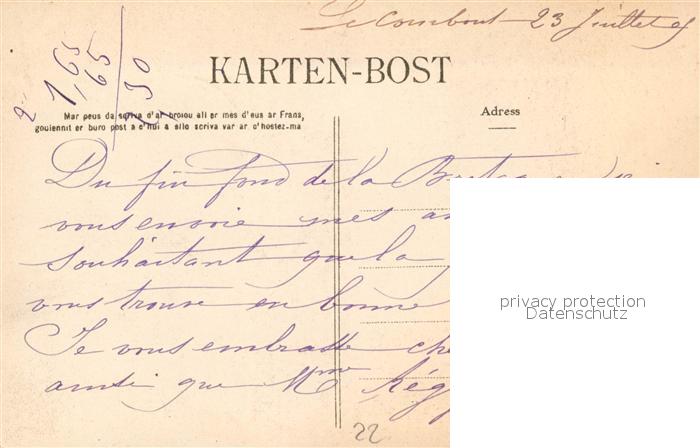 Le Combout 23 Juillet
1,65
65
KARTEN-BOST
Mar peus da scriva d'ar broiou all er mes d'eus ar Frans,
gouiennit er buro post a c'hui a ello scriva var ar c'hostez-ma
Adress
Du fin fond de la
vous envoie mes
souhaitant que la
vous trouve en bonne
Je vous embrasse
ainsi que Mme
22
privacy protection
Datenschutz